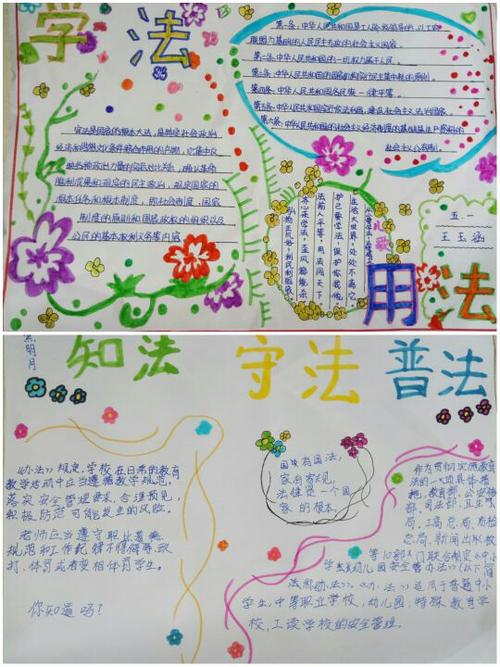 学法
第一条:中华人民共和国是工人阶级领导的,以工农
联盟为基础的人民民主专政的社会主义国家。
第二条:中华人民共和国的一切权力属于人民。
第三条:中华人民共和国的国家机构实行民主集中制的原则。
第四条:中华人民共和国各民族一律平等。
第五条:中华人民共和国实行依法治国,建设社会主义法治国家。
第六条:中华人民共和国的社会主义经济制度的基础是生产资料的
社会主义公有制。
宪法是国家的根本大法,是制定
胜利成果和
的民主政治,规定国家的
根本任务和根本制度,即社会制度,国家
制度的原则和国家政权的组织以及
公民的基本权利义务等内容
在法大世界,处处不离它
护己要学法,保护你我他。
法前人平等,用法闯天下
五一
王玉涵
用法
明月
知法 守法 普法
办法》规定,学校在日常的教育
教学活动中应当遵循教学规范。
落实安全管理要求,合理预见,
积极防范可能发生的风险。
老师应当遵守职业道德
规范和工作纪律不得侮辱、殴
打、体罚或者变相体罚学生。
你知道吗?
国失有国法,
家有家规,
法律是一个国
家的根本。
作为贯彻实施教育
法的一大的具体措
施,教育部、公安部
部、司法部、
局、工商总局、质检
总局、新闻出版
等10部门联合制定《中小
学生及幼儿园安全管办法》(以下简
法称办法》。《办法》适用于普通中小
学生,中等职业学校,幼儿园,特殊教育学
校,工读学校的安全管理。